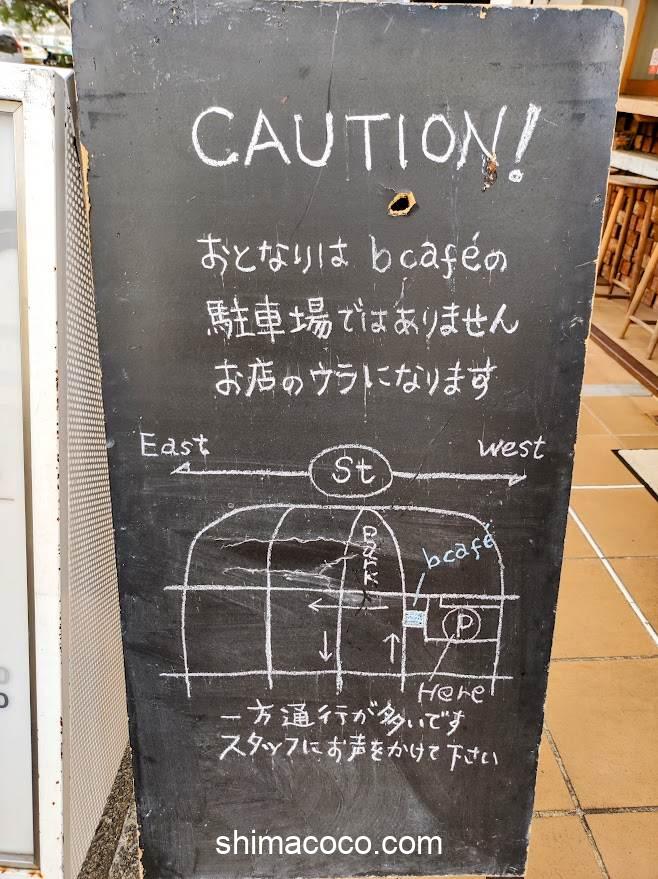 CAUTION!
おとなりは bcaféの
駐車場ではありません
お店のウラになります
East
West
St
Park
bcafé
P
Here
一方通行が多いです
スタッフにお声をかけて下さい
shimacoco.com